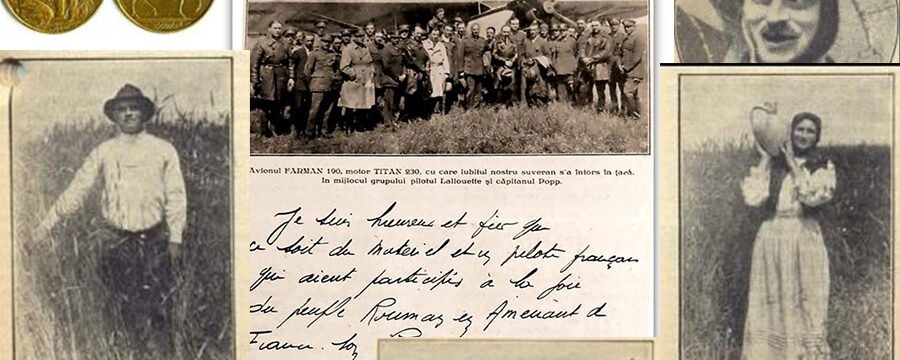 Avionul FARMAN 190, motor TITAN 230, cu care iubitul nostru suveran s'a întors în țară.
In mijlocul grupului pilotul Lallouette și căpitanul Popp.
Je suis heureux et fier que
ce soit du matériel et un pilote français
qui aient participés à la joie
du peuple Roumain en Amenant de
France